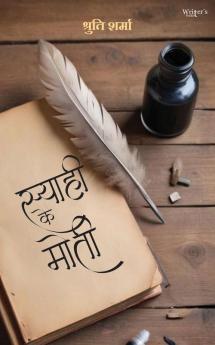 Writer's
श्रुति शर्मा
स्याही
के
मोती